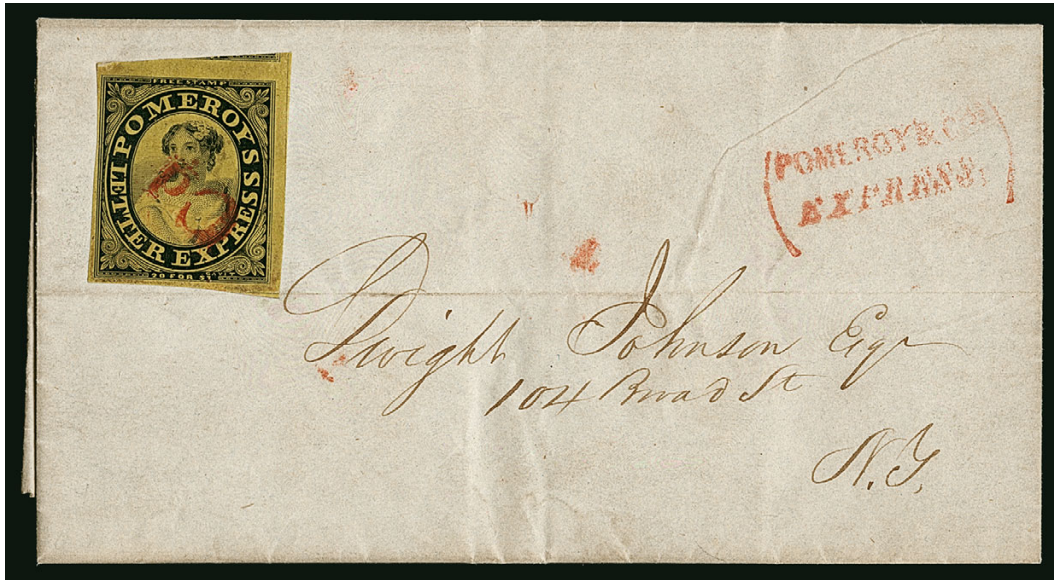 FREE STAMP
POMEROY'S
LETTER EXPRESS
20 FOR $1
POMEROY & CO'S
EXPRESS.
Dwight Johnson Esqr
104 Broad St
N.Y.